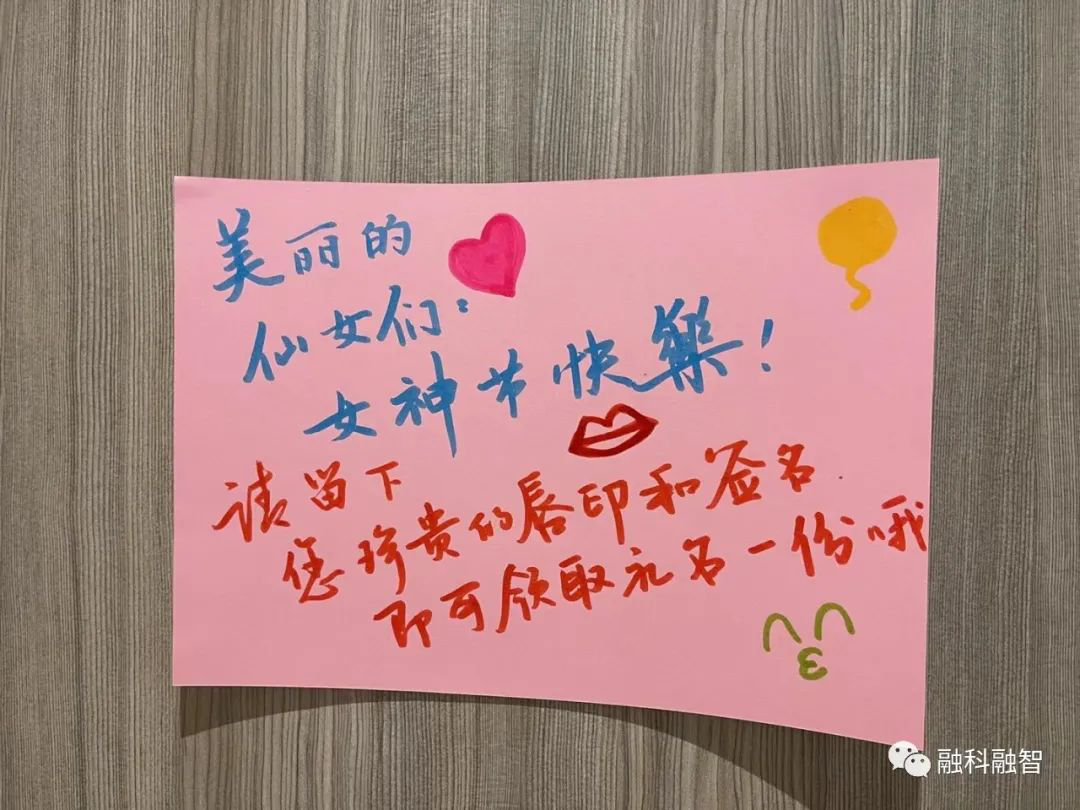 美丽的
仙女们：
女神节快樂！
请留下
您珍贵的唇印和签名
即可领取礼名一份哦
融科融智